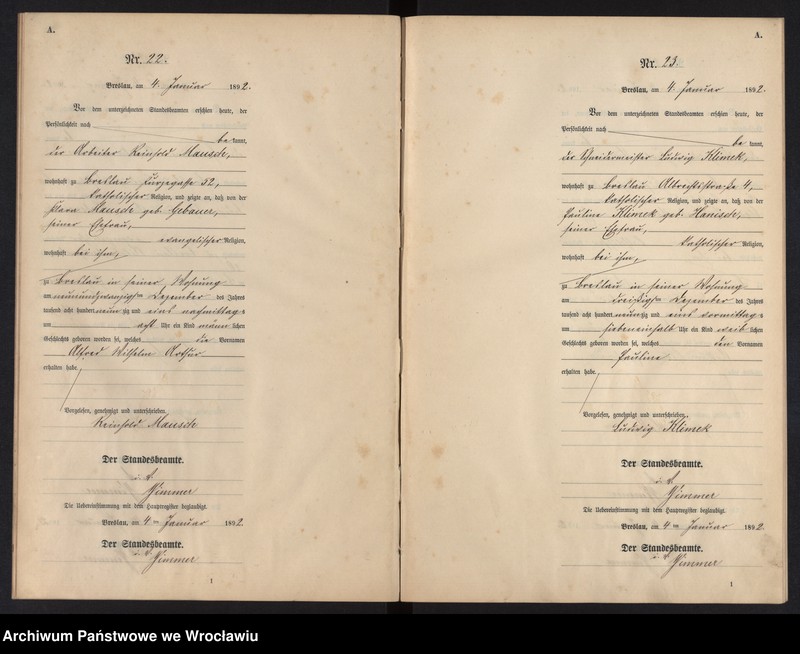 A.
Nr. 22.
Breslau, am 4. Januar 1892.
Vor dem unterzeichneten Standesbeamten erschien heute, der
Persönlichkeit nach
be kannt,
der Arbeiter Reinhold Mausde,
wohnhaft zu Breslau Kurzegasse 52,
katholischer Religion, und zeigte an, daß von der
Klara Mausde geb. Gebauer,
seiner Ehefrau,
evangelischer Religion,
wohnhaft bei ihm,
zu Breslau in seiner Wohnung
am neunundzwanzigsten Dezember des Jahres
tausend acht hundert neunzig und eins nachmittags
um acht Uhr ein Kind männlichen
Geschlechts geboren worden sei, welches die Vornamen
Alfred Wilhelm Arthur
erhalten habe.
Vorgelesen, genehmigt und unterschrieben.
Reinhold Mausde
Der Standesbeamte.
Zimmer
Die Uebereinstimmung mit dem Hauptregister beglaubigt.
Breslau, am 4ten Januar 1892.
Der Standesbeamte.
Zimmer
1
A.
Nr. 23.
Breslau, am 4. Januar 1892.
Vor dem unterzeichneten Standesbeamten erschien heute, der
Persönlichkeit nach
be kannt,
der Schneidermeister Ludwig Klimek,
wohnhaft zu Breslau Albrechtsstraße 4,
katholischer Religion, und zeigte an, daß von der
Pauline Klimek geb. Hanisch,
seiner Ehefrau,
katholischer Religion,
wohnhaft bei ihm,
zu Breslau in seiner Wohnung
am dreißigsten Dezember des Jahres
tausend acht hundert neunzig und eins vormittags
um siebeneinhalb Uhr ein Kind weiblichen
Geschlechts geboren worden sei, welches den Vornamen
Pauline
erhalten habe.
Vorgelesen, genehmigt und unterschrieben.
Ludwig Klimek
Der Standesbeamte.
Zimmer
Die Uebereinstimmung mit dem Hauptregister beglaubigt.
Breslau, am 4ten Januar 1892.
Der Standesbeamte.
Zimmer
1
Archiwum Państwowe we Wrocławiu